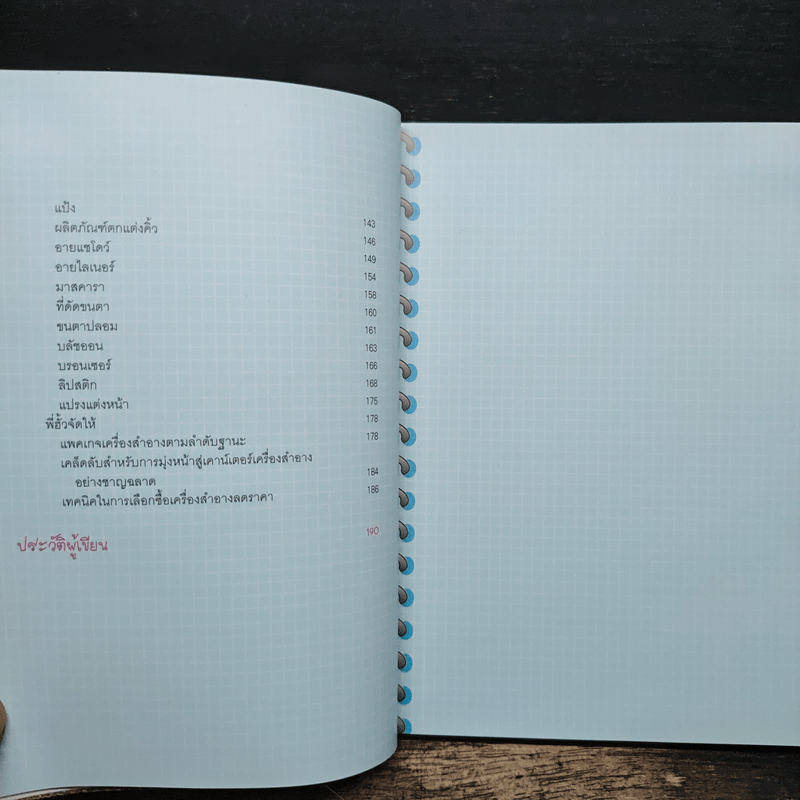 แป้ง 143
ผลิตภัณฑ์ตกแต่งคิ้ว 146
อายแชโดว์ 149
อายไลเนอร์ 154
มาสคารา 158
ที่ดัดขนตา 160
ขนตาปลอม 161
บลัชออน 163
บรอนเซอร์ 166
ลิปสติก 168
แปรงแต่งหน้า 175
พี่ฮั้วจัดให้ 178
แพคเกจเครื่องสำอางตามลำดับฐานะ 178
เคล็ดลับสำหรับการมุ่งหน้าสู่เคาน์เตอร์เครื่องสำอาง
อย่างชาญฉลาด 184
เทคนิคในการเลือกซื้อเครื่องสำอางลดราคา 186
ประวัติผู้เขียน 190